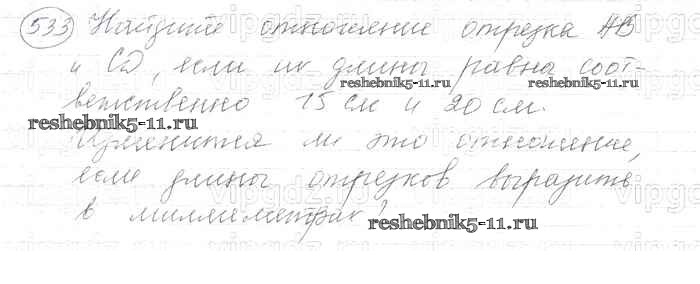 533 Найдите отношение отрезка AB
и CD, если их длины равна соот-
reshebnik5-11.ru reshebnik5-11.ru
ветственно 15 см и 20 см.
reshebnik5-11.ru
Изменится ли это отношение,
если длины отрезков выразить
в миллиметрах?
reshebnik5-11.ru